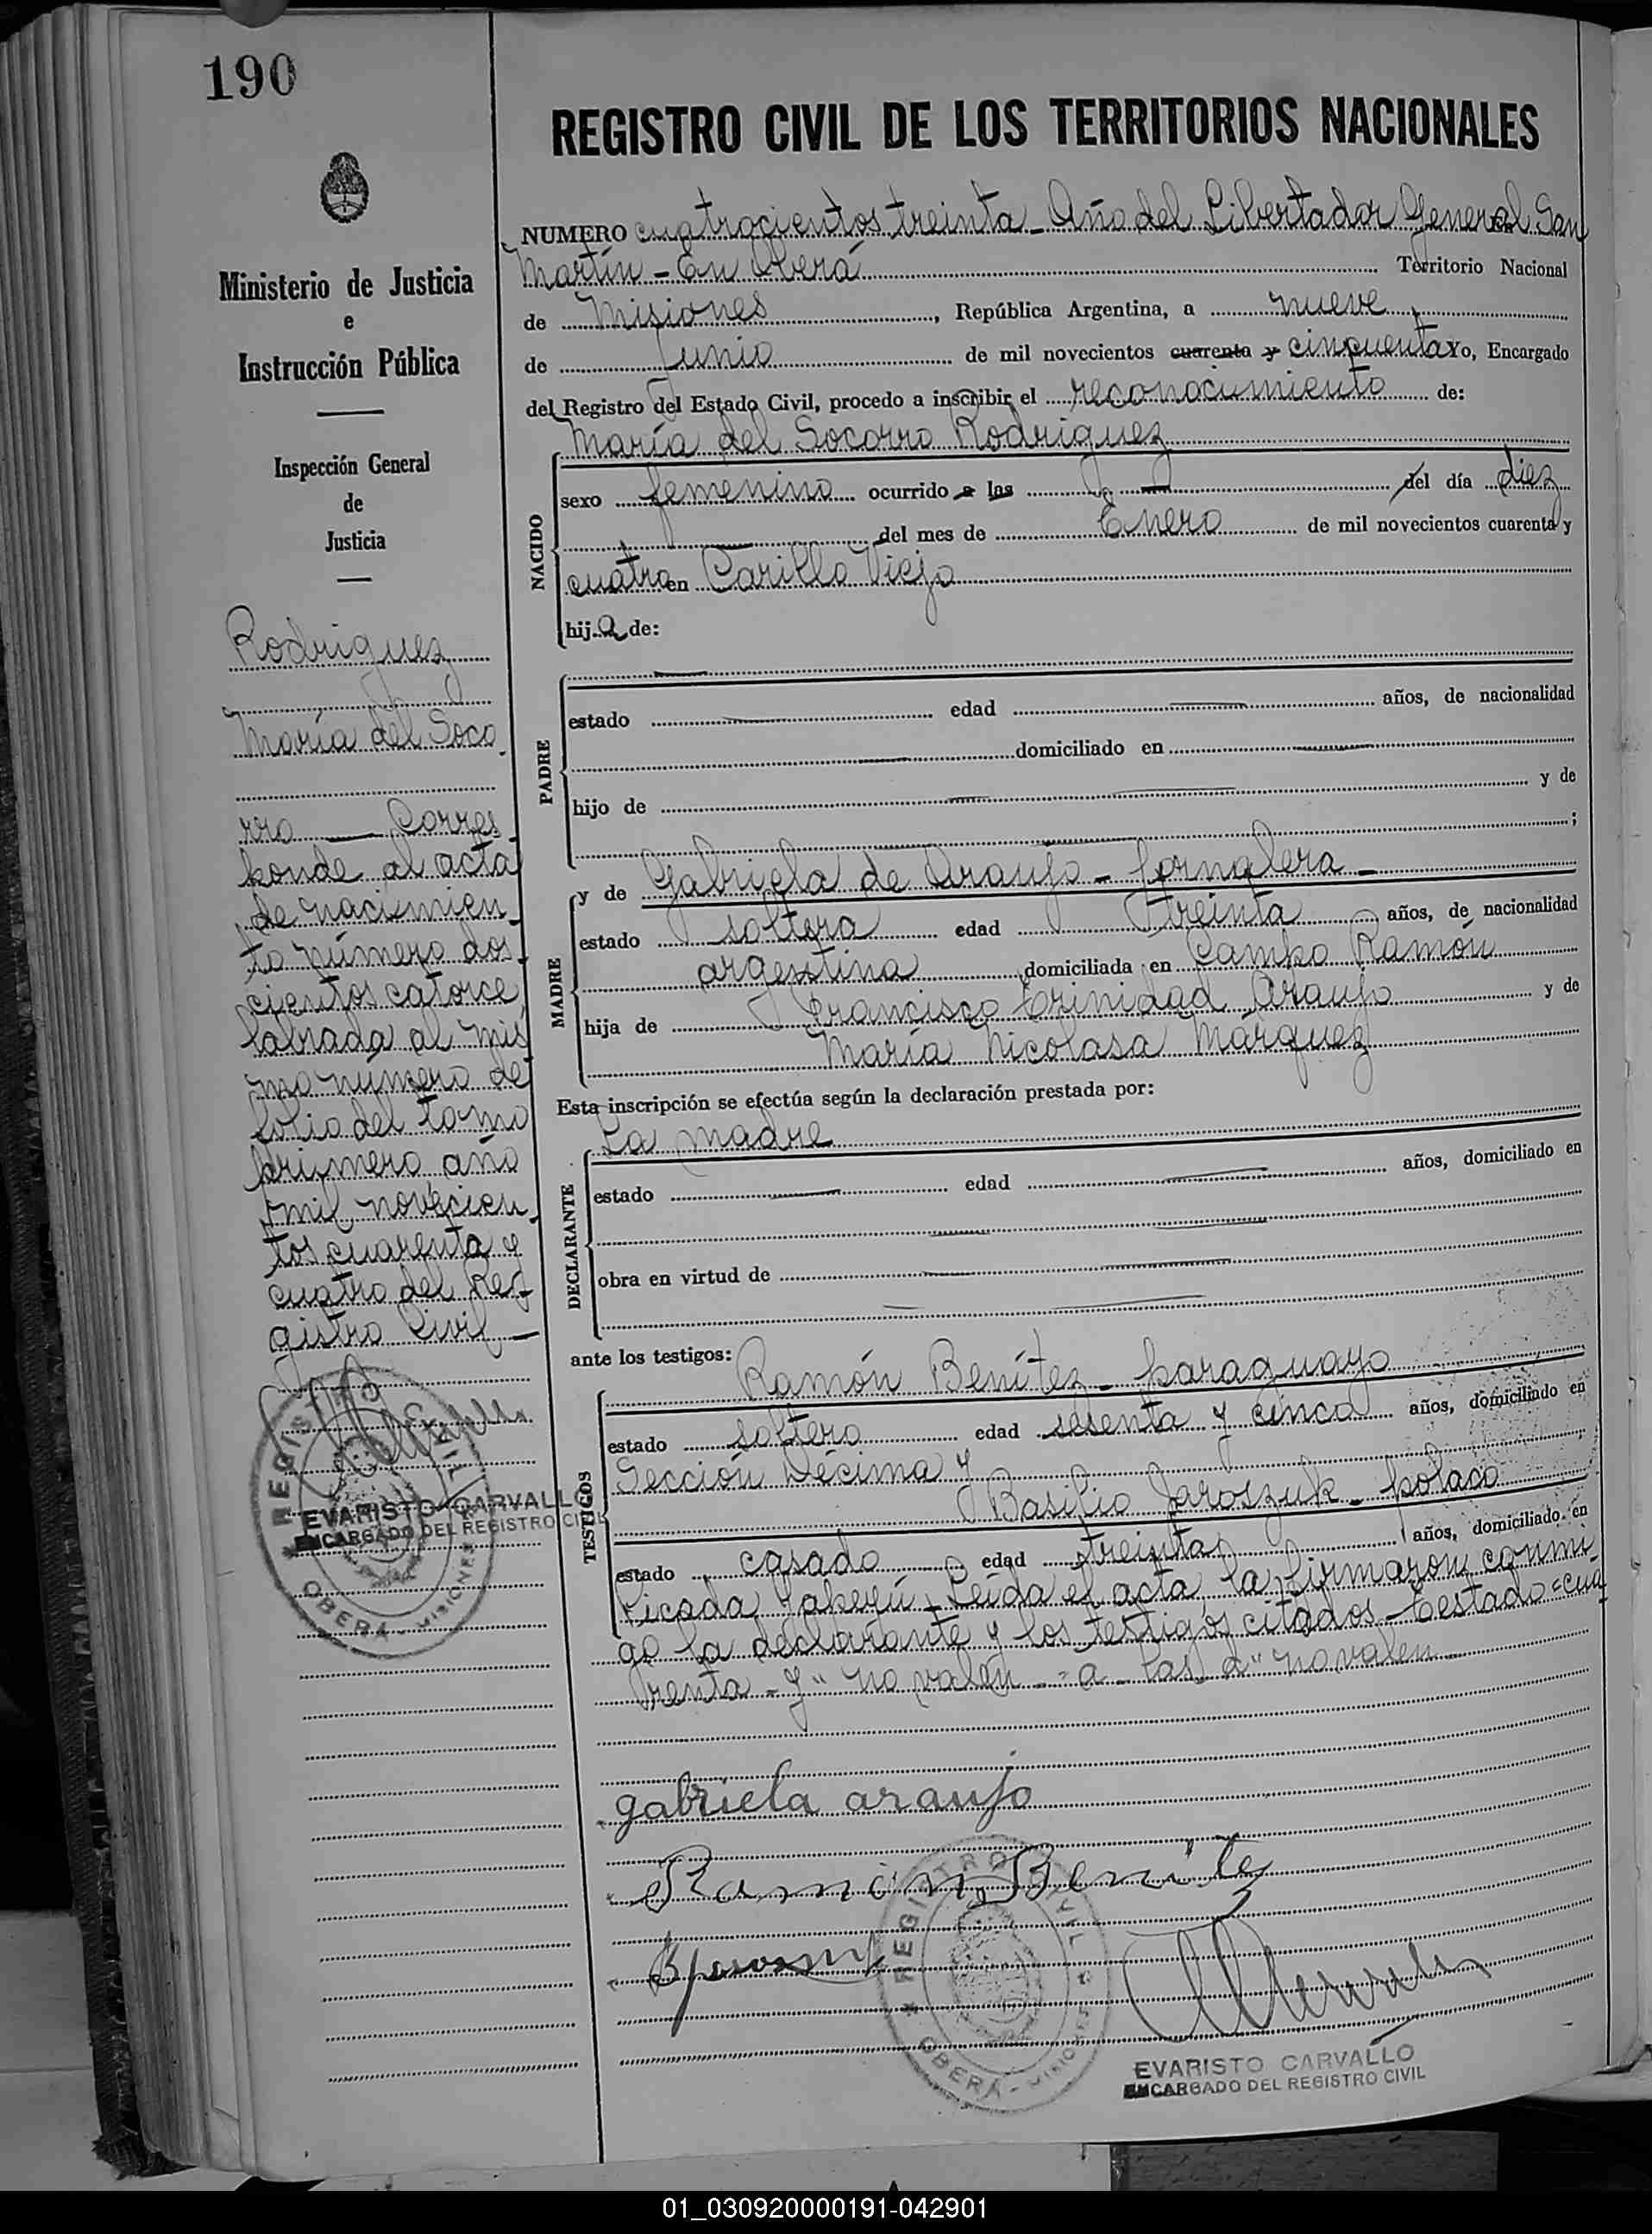 190
REGISTRO CIVIL DE LOS TERRITORIOS NACIONALES
Ministerio de Justicia
e
Instrucción Pública
Inspección General
de
Justicia
Rodriguez
María del Soco
rro — Corres
ponde al acta
de nacimien
to número dos
cientos catorce
labrada al mis
mo número de
folio del tomo
primero año
mil novecien
tos cuarenta y
cuatro del Re
gistro Civil —
REGISTRO CIVIL
EVARISTO CARVALLO
ENCARGADO DEL REGISTRO CIVIL
OBERÁ - MISIONES
NUMERO cuatrocientos treinta - Año del Libertador General San
Martín - En Oberá Territorio Nacional
de Misiones, República Argentina, a nueve
de Junio de mil novecientos cuarenta y cincuenta Yo, Encargado
del Registro del Estado Civil, procedo a inscribir el reconocimiento de:
María del Socorro Rodriguez
NACIDO
sexo femenino ocurrido a las — del día diez
del mes de Enero de mil novecientos cuarenta y
cuatro en Carillo Viejo
hija de:
PADRE
estado — edad — años, de nacionalidad
— domiciliado en —
hijo de — y de
— ;
MADRE
y de Gabriela de Araujo - jornalera -
estado soltera edad treinta años, de nacionalidad
argentina domiciliada en Campo Ramón
hija de Francisco Trinidad Araujo y de
María Nicolasa Márquez
Esta inscripción se efectúa según la declaración prestada por:
La madre
DECLARANTE
estado — edad — años, domiciliado en
obra en virtud de —
ante los testigos:
Ramón Benítez - paraguayo
TESTIGOS
estado soltero edad sesenta y cinco años, domiciliado en
Sección Décima y
Basilio Jaroszuk - polaco
estado casado edad treinta años, domiciliado en
Picada Yapeyú - Leída el acta la firmaron conmi
go la declarante y los testigos citados - Testado = cua
renta - y" no valen - = a - las d" no valen -
gabriela araujo
Ramón Benitez
REGISTRO CIVIL
OBERÁ - MISIONES
EVARISTO CARVALLO
ENCARGADO DEL REGISTRO CIVIL
01_030920000191-042901